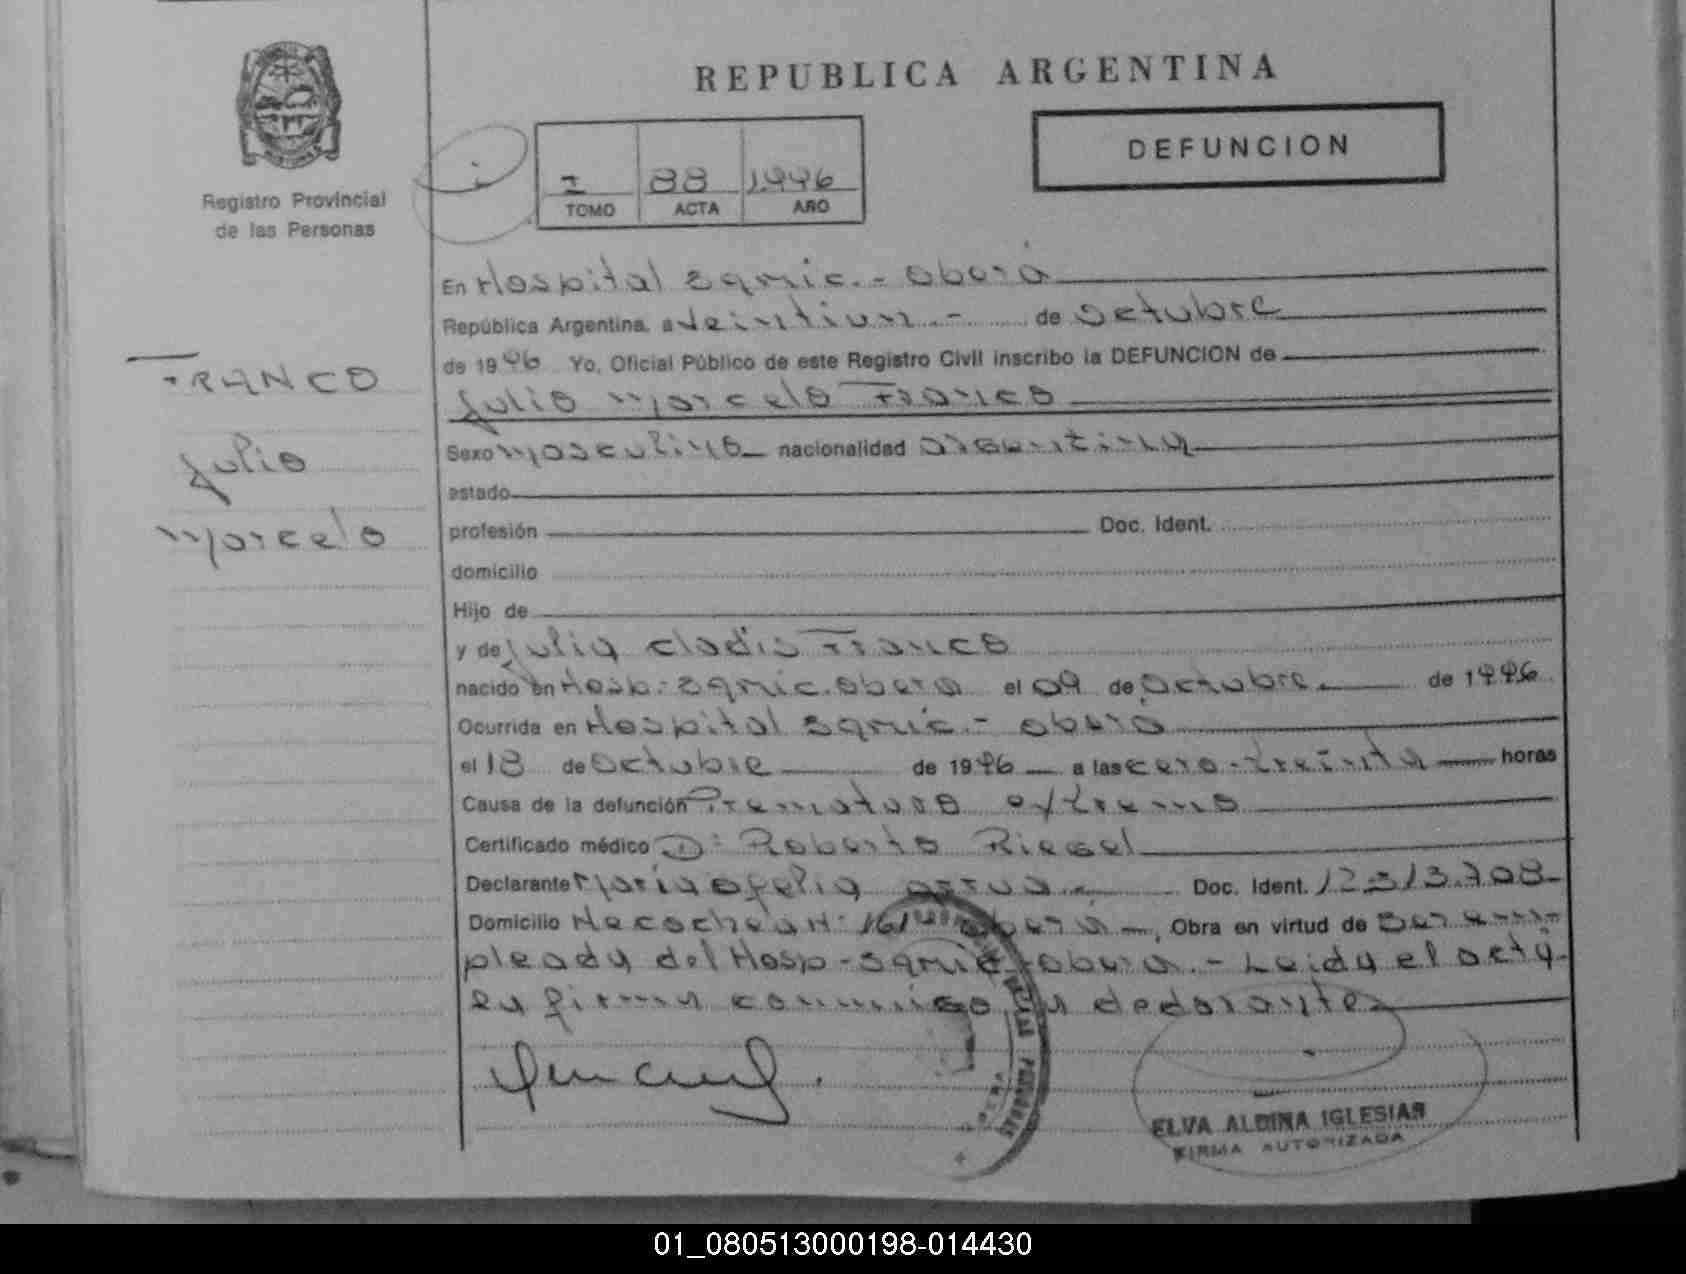 REPUBLICA ARGENTINA
DEFUNCION
I 88 1996
TOMO ACTA AÑO
Registro Provincial
de las Personas
FRANCO
Julio
Marcelo
En Hospital Samic. - Oberá
República Argentina, a Veintiun.- de Octubre
de 1996 Yo, Oficial Público de este Registro Civil inscribo la DEFUNCION de
Julio Marcelo Franco
Sexo Masculino nacionalidad Argentina
estado
profesión Doc. Ident.
domicilio
Hijo de
y de Julia Gladis Franco
nacido en Hosp. Samic. Oberá el 09 de Octubre. de 1996
Ocurrida en Hospital Samic - Oberá
el 18 de Octubre de 1996 a las cero-treinta horas
Causa de la defunción Prematuro extremo
Certificado médico Dr Roberto Riegel
Declarante María Ofelia Arrua.- Doc. Ident. 12.313.708-
Domicilio Necochea N: 161 Oberá, Obra en virtud de Ser em
pleada del Hosp - Samic - Oberá. - Leida el acta
la firma conmigo la declarante
ELVA ALBINA IGLESIAS
FIRMA AUTORIZADA
01_080513000198-014430